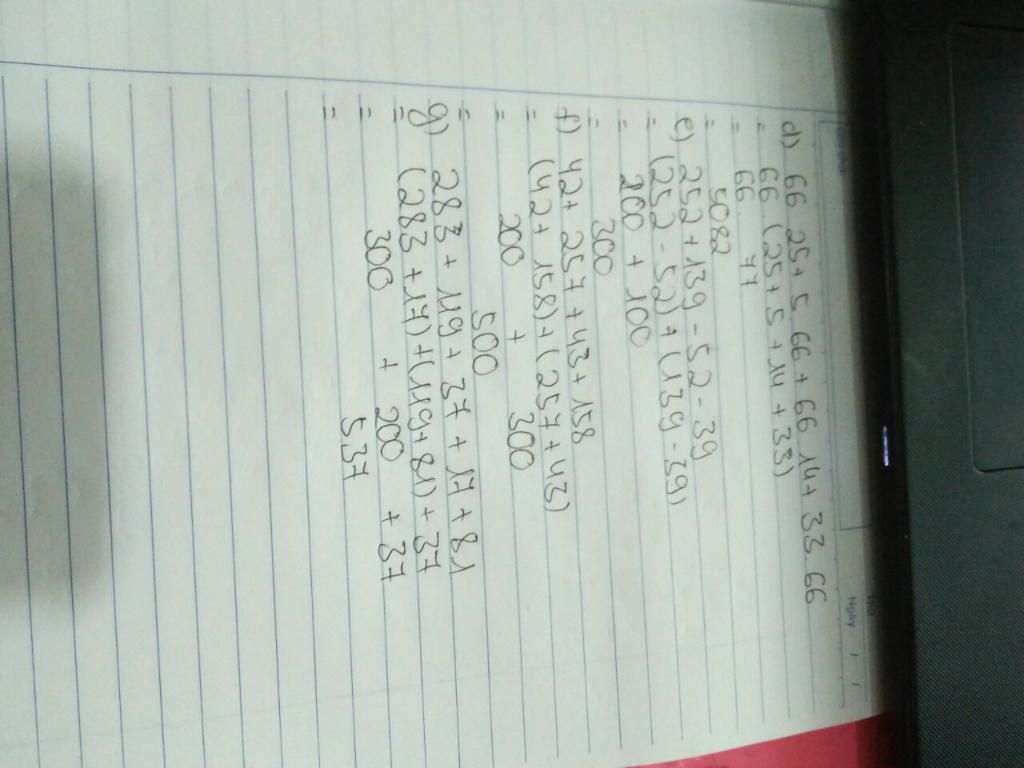 Thứ
Ngày / /
d) 66 . 25 + 5 . 66 + 66 . 14 + 33 . 66
= 66 . (25 + 5 + 14 + 33)
= 66 . 77
= 5082
e) 252 + 139 - 52 - 39
= (252 - 52) + (139 - 39)
= 200 + 100
= 300
f) 42 + 257 + 43 + 158
= (42 + 158) + (257 + 43)
= 200 + 300
= 500
g) 283 + 119 + 37 + 17 + 81
= (283 + 17) + (119 + 81) + 37
= 300 + 200 + 37
= 537